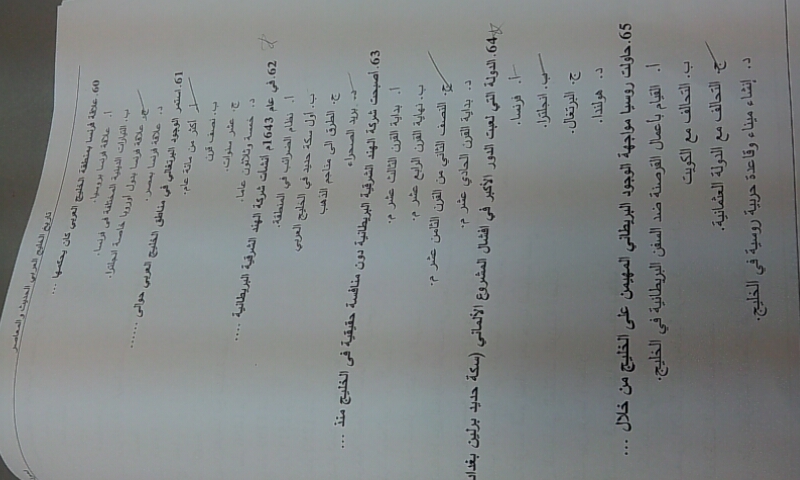 تاريخ الخليج العربي الحديث والمعاصر
60. علاقة فرنسا بمنطقة الخليج العربي كان يحكمها ...
أ. علاقة فرنسا بروسيا.
ب. التيارات الدينية المختلفة في فرنسا.
ج. علاقة فرنسا بدول أوروبا خاصة انجلترا.
د. علاقة فرنسا بمصر.
61. استمر الوجود البرتغالي في مناطق الخليج العربي حوالى ......
أ. أكثر من مائة عام.
ب. نصف قرن
ج. عشر سنوات.
د. خمسة وثلاثون عاما.
62. في عام 1643م أنشأت شركة الهند الشرقية البريطانية ....
أ. نظام الضرائب في المنطقة.
ب. أول سكة حديد في الخليج العربي
ج. الطرق الى مناجم الذهب
د. بريد الصحراء
63. أصبحت شركة الهند الشرقية البريطانية دون منافسة حقيقية في الخليج منذ ...
أ. بداية القرن الثالث عشر م.
ب. نهاية القرن الرابع عشر م.
ج. النصف الثاني من القرن الثامن عشر م.
د. بداية القرن الحادي عشر م.
64. الدولة التي لعبت الدور الأكبر في افشال المشروع الألماني (سكة حديد برلين بغداد
أ. فرنسا.
ب. انجلترا.
ج. البرتغال.
د. هولندا.
65. حاولت روسيا مواجهة الوجود البريطاني المهيمن على الخليج من خلال ...
أ. القيام بأعمال القرصنة ضد السفن البريطانية في الخليج.
ب. التحالف مع الكويت
ج. التحالف مع الدولة العثمانية.
د. إنشاء ميناء وقاعدة حربية روسية في الخليج.